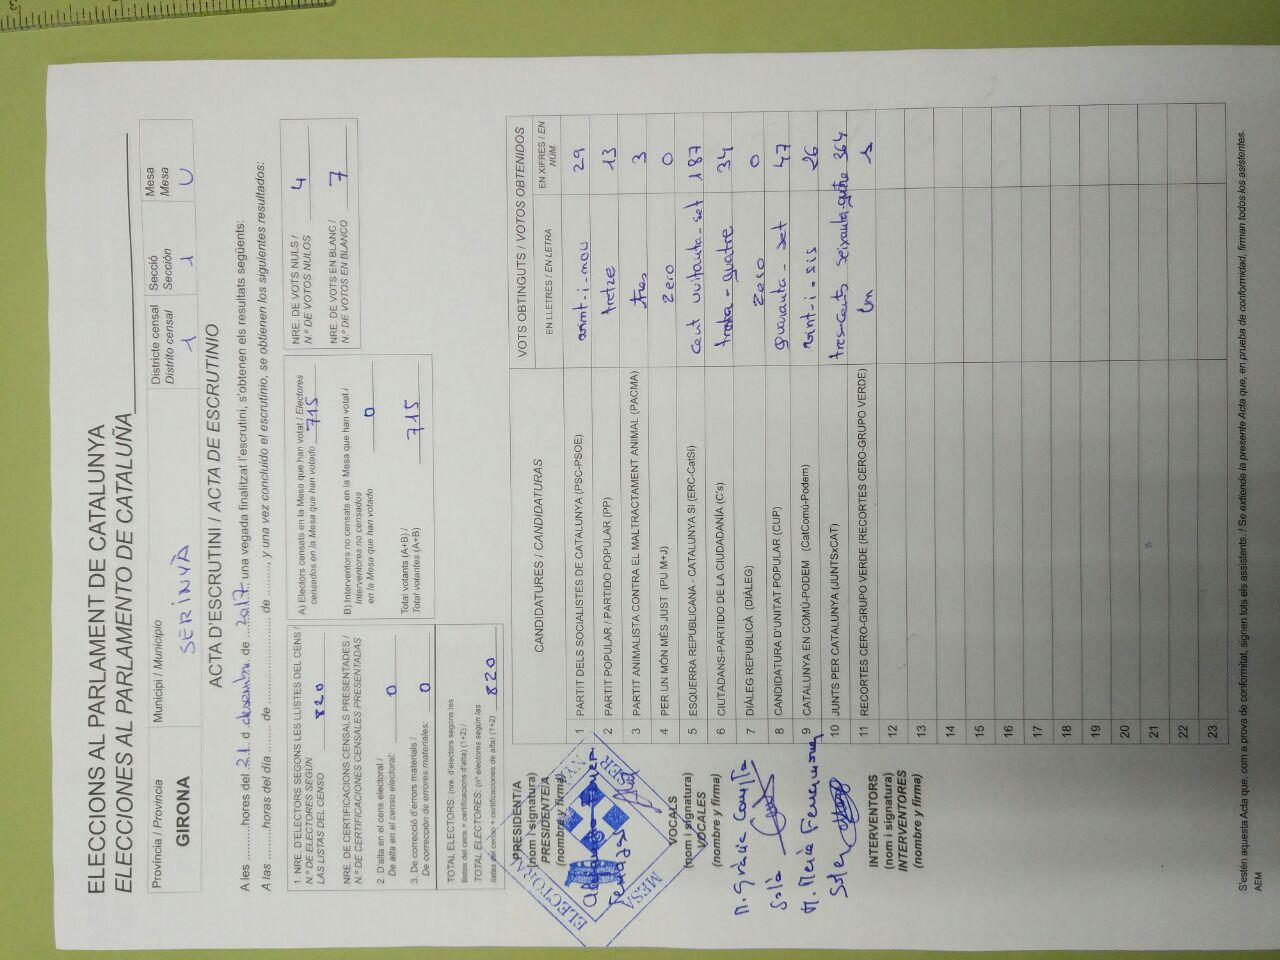 ELECCIONS AL PARLAMENT DE CATALUNYA
ELECCIONES AL PARLAMENTO DE CATALUÑA
Província / Provincia
GIRONA
Municipi / Municipio
SERINYÀ
Districte censal
Distrito censal
1
Secció
Sección
1
Mesa
Mesa
U
ACTA D'ESCRUTINI / ACTA DE ESCRUTINIO
A les .......... hores del 21 d desembre de 2017, una vegada finalitzat l'escrutini, s'obtenen els resultats següents:
A las .......... horas del día .......... de .......... de .........., y una vez concluido el escrutinio, se obtienen los siguientes resultados:
1. NRE. D'ELECTORS SEGONS LES LLISTES DEL CENS /
N.º DE ELECTORES SEGÚN
LAS LISTAS DEL CENSO 820
NRE. DE CERTIFICACIONS CENSALS PRESENTADES /
N.º DE CERTIFICACIONES CENSALES PRESENTADAS
2. D'alta en el cens electoral /
De alta en el censo electoral: 0
3. De correcció d'errors materials /
De corrección de errores materiales: 0
TOTAL ELECTORS: (nre. d'electors segons les
llistes del cens + certificacions d'alta) (1+2) /
TOTAL ELECTORES: (nº electores según las
listas del censo + certificaciones de alta) (1+2) 820
A) Electors censats en la Mesa que han votat / Electores
censados en la Mesa que han votado 715
B) Interventors no censats en la Mesa que han votat /
Interventores no censados
en la Mesa que han votado 0
Total votants (A+B) /
Total votantes (A+B) 715
NRE. DE VOTS NULS /
N.º DE VOTOS NULOS 4
NRE. DE VOTS EN BLANC /
N.º DE VOTOS EN BLANCO 7
CANDIDATURES / CANDIDATURAS
VOTS OBTINGUTS / VOTOS OBTENIDOS
EN LLETRES / EN LETRA
EN XIFRES / EN NÚM.
1 PARTIT DELS SOCIALISTES DE CATALUNYA (PSC-PSOE) vint-i-nou 29
2 PARTIT POPULAR / PARTIDO POPULAR (PP) tretze 13
3 PARTIT ANIMALISTA CONTRA EL MALTRACTAMENT ANIMAL (PACMA) tres 3
4 PER UN MÓN MÉS JUST (PU M+J) zero 0
5 ESQUERRA REPUBLICANA - CATALUNYA SÍ (ERC-CatSí) cent vuitanta-set 187
6 CIUTADANS-PARTIDO DE LA CIUDADANÍA (C's) trenta-quatre 34
7 DIÀLEG REPUBLICÀ (DIÀLEG) zero 0
8 CANDIDATURA D'UNITAT POPULAR (CUP) quaranta-set 47
9 CATALUNYA EN COMÚ-PODEM (CatComú-Podem) vint-i-sis 26
10 JUNTS PER CATALUNYA (JUNTSxCAT) tres-cents seixanta-quatre 364
11 RECORTES CERO-GRUPO VERDE (RECORTES CERO-GRUPO VERDE) Un 1
12
13
14
15
16
17
18
19
20
21
22
23
PRESIDENT/A
(nom i signatura)
PRESIDENTE/A
(nombre y firma)
MESA ELECTORAL
VOCALS
(nom i signatura)
VOCALES
(nombre y firma)
M. Gràcia
Solà
INTERVENTORS
(nom i signatura)
INTERVENTORES
(nombre y firma)
S'estén aquesta Acta que, com a prova de conformitat, signen tots els assistents. / Se extiende la presente Acta que, en prueba de conformidad, firman todos los asistentes.
AEM